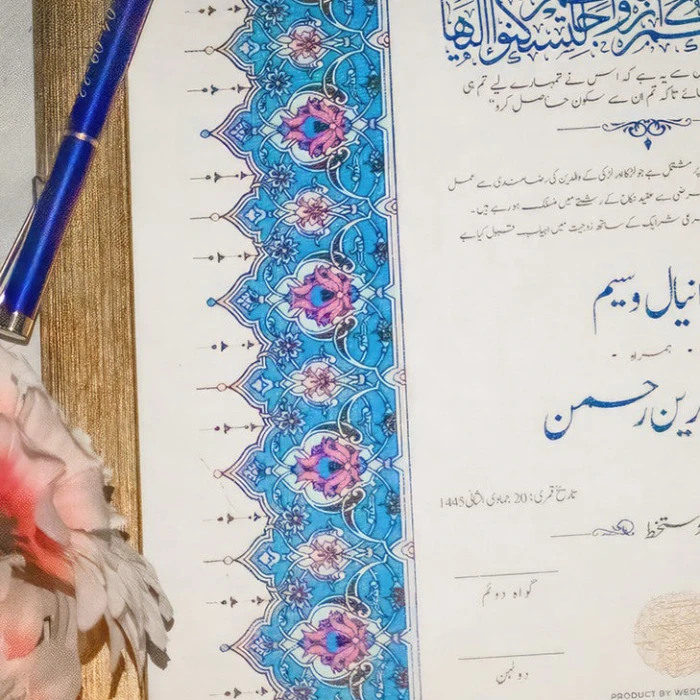 لتسكنوا إليها
سے یہ ہے کہ اس نے تمہارے لیے تم ہی
تاکہ تم ان سے سکون حاصل کرو"
پر مشتمل ہے جو لڑکا اور لڑکی کے والدین کی رضامندی سے عمل
مرضی سے عقید نکاح کے رشتے میں منسلک ہو رہے ہیں۔
شرایک کے ساتھ زوجیت میں ایجاب و قبول کیا ہے
نیال وسیم
ہمراہ
رین رحمن
تاریخ قمری: 20 جمادی الثانی 1445
دستخط
گواہ دوئم
دولہن
PRODUCT BY WED
04.09.22